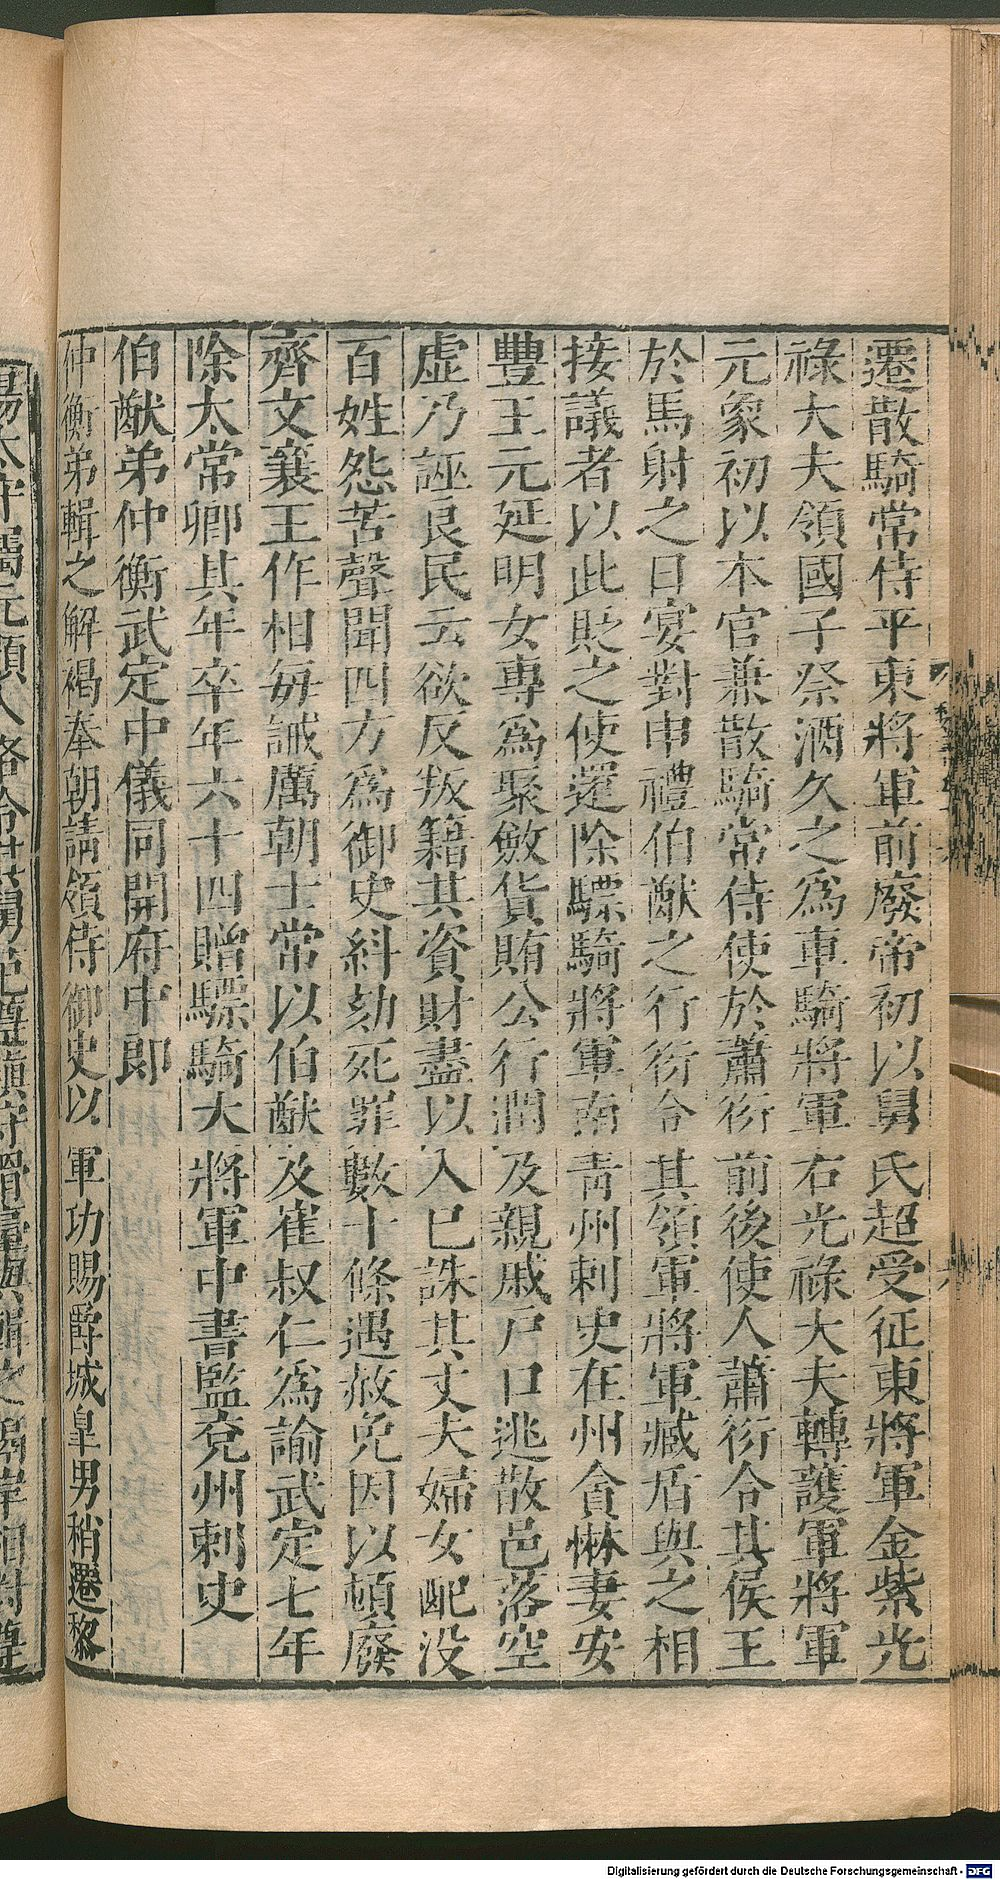 遷散騎常侍平東將軍前廢帝初以舅氏超受征東將軍金紫光
祿大夫領國子祭酒久之爲車騎將軍右光祿大夫轉護軍將軍
元象初以本官兼散騎常侍使於蕭衍前後使人蕭衍令其侯王
於馬射之日宴對申禮伯猷之行衍令其領軍將軍臧盾與之相
接議者以此貶之使還除驃騎將軍南青州刺史在州貪惏妻安
豐王元延明女專爲聚斂貨賄公行潤及親戚戶口逃散邑落空
虛乃誣良民云欲反叛籍其資財盡以入己誅其丈夫婦女配沒
百姓怨苦聲聞四方爲御史糾劾死罪數十條遇赦免因以頓廢
齊文襄王作相每誡厲朝士常以伯猷及崔叔仁爲諭武定七年
除太常卿其年卒年六十四贈驃騎大將軍中書監兗州刺史
伯猷弟仲衡武定中儀同開府中郎
仲衡弟輯之解褐奉朝請領侍御史以軍功賜爵城皐男稍遷黎
Digitalisierung gefördert durch die Deutsche Forschungsgemeinschaft - DFG